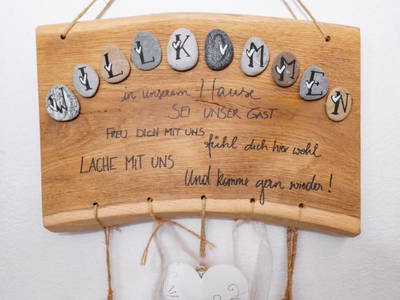 WILLKOMMEN
in unserem Hause
SEI UNSER GAST
FREU DICH MIT UNS
fühl dich hier wohl
LACHE MIT UNS
Und komme gern wieder!